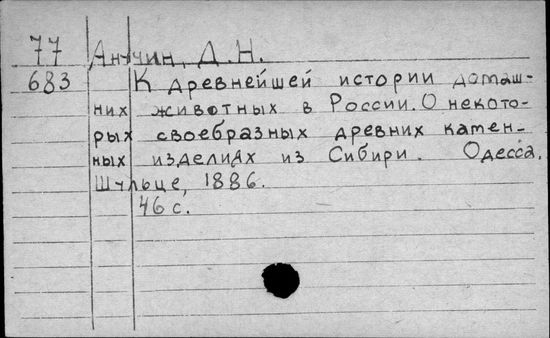 77 Анучин, Д.Н.
683 К древнейшей истории домаш-
них животных в России. О некото-
рых своебразных древних камен-
ных изделиях из Сибири. Одесса,
Шульце, 1886.
46 с.